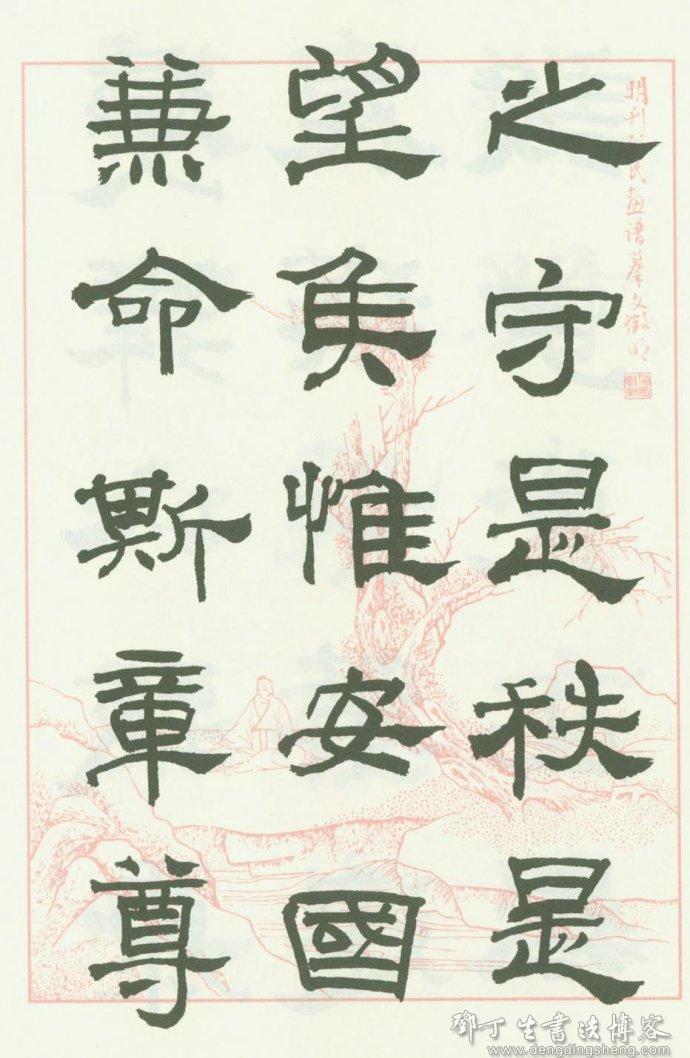 明刊氏畫譜摹文徵明
之守是秩是
望矦惟安國
兼命斯章尊
鄧丁生書法博客
www.dengdingsheng.com